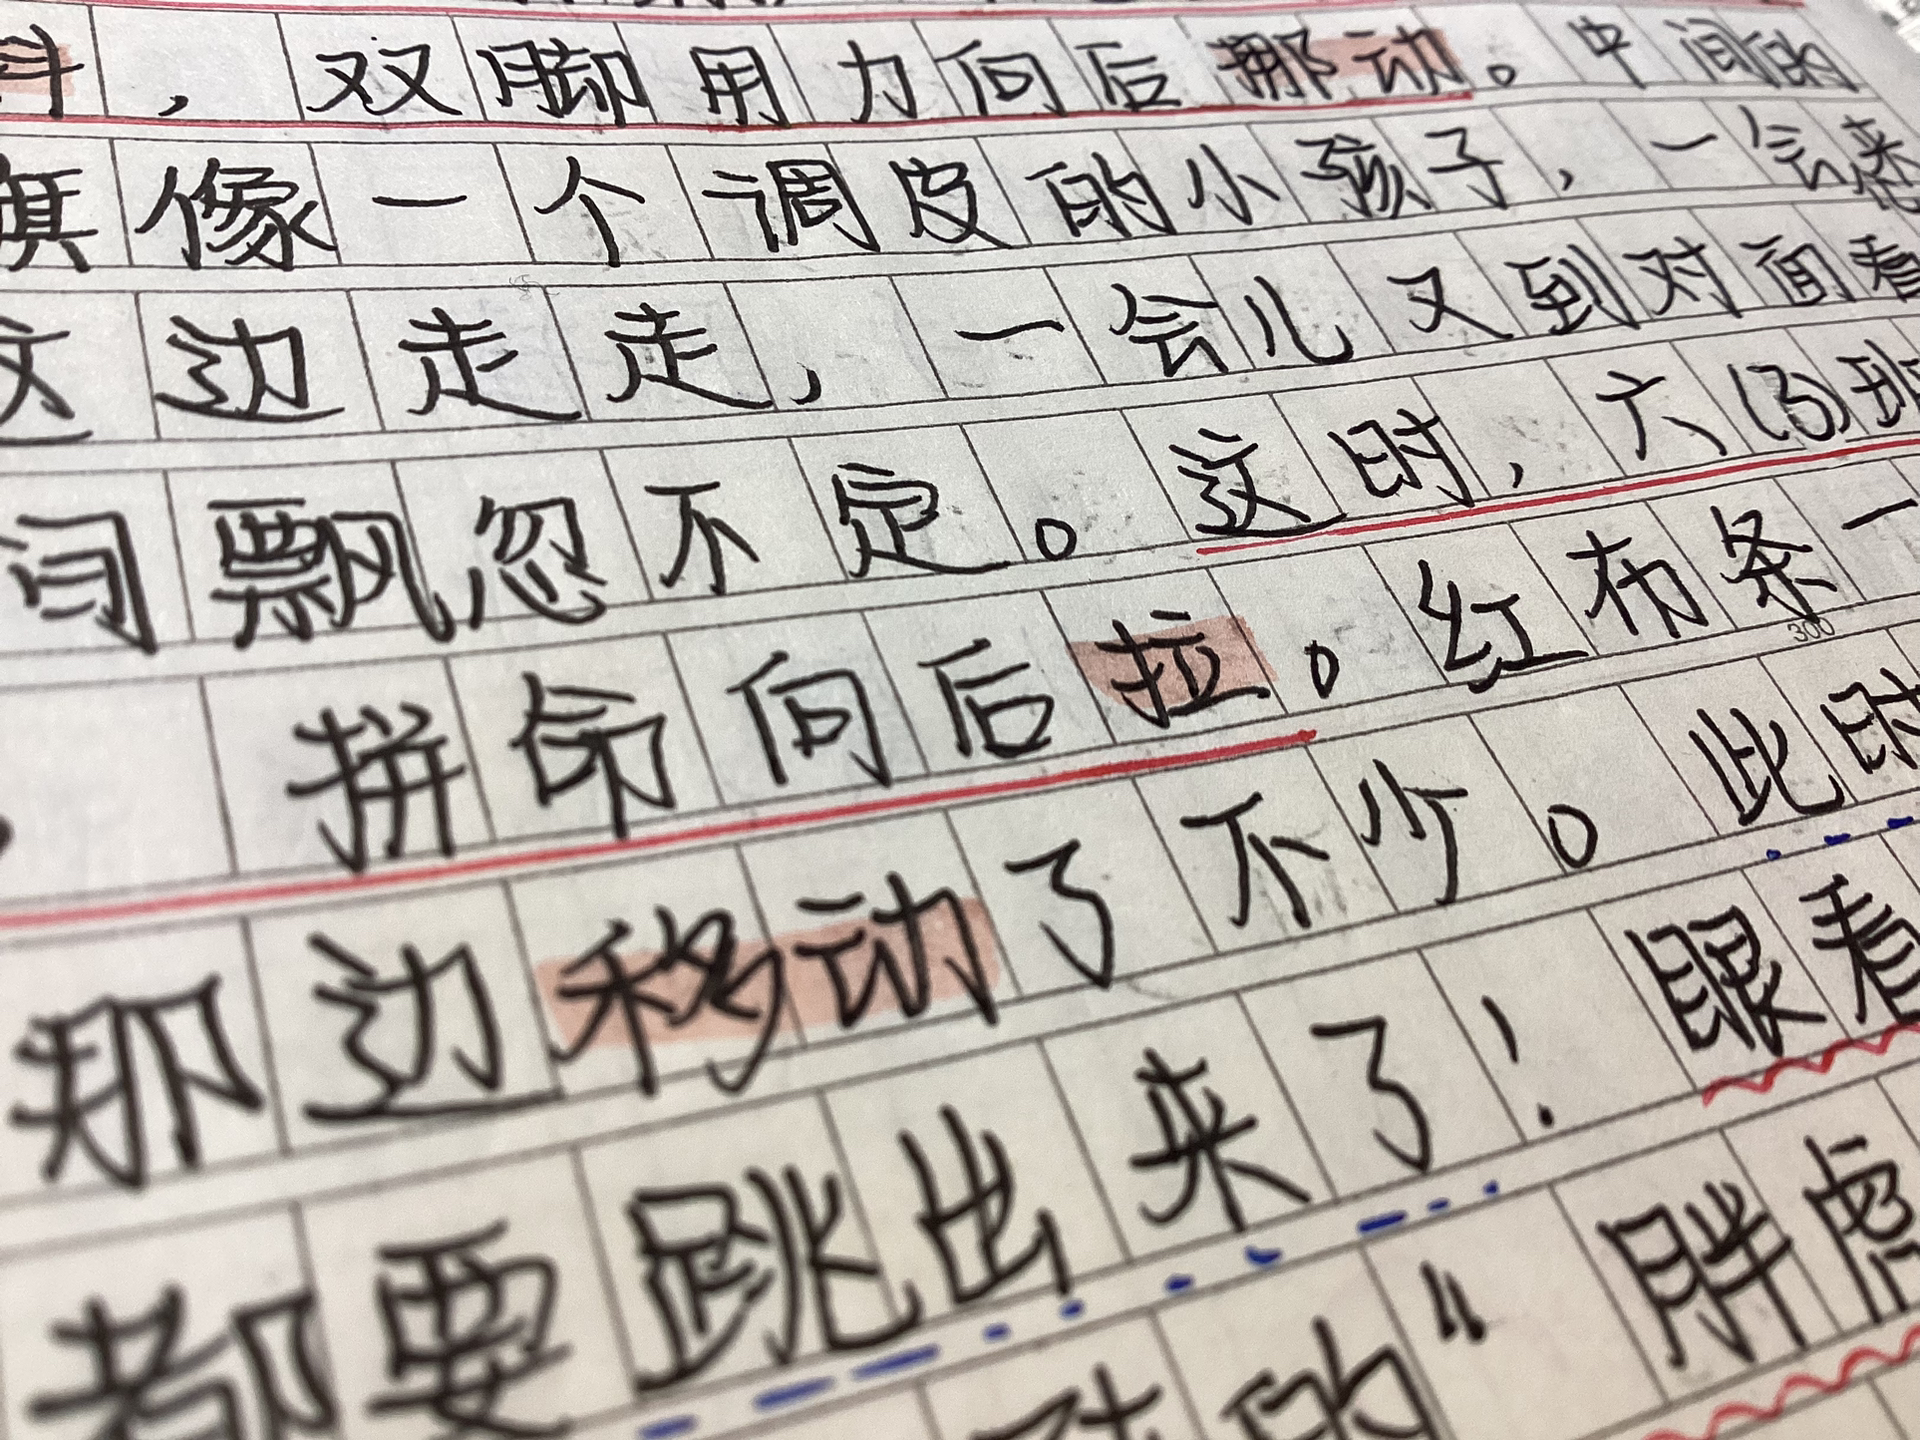 ，双脚用力向后挪动。中间的
旗像一个调皮的小孩子，一会来
这边走走，一会儿又到对面看
间飘忽不定。这时，六(3)班
拼命向后拉。红布条一
300
那边移动了不少。此时
都要跳出来了！眼看
的“胖虎